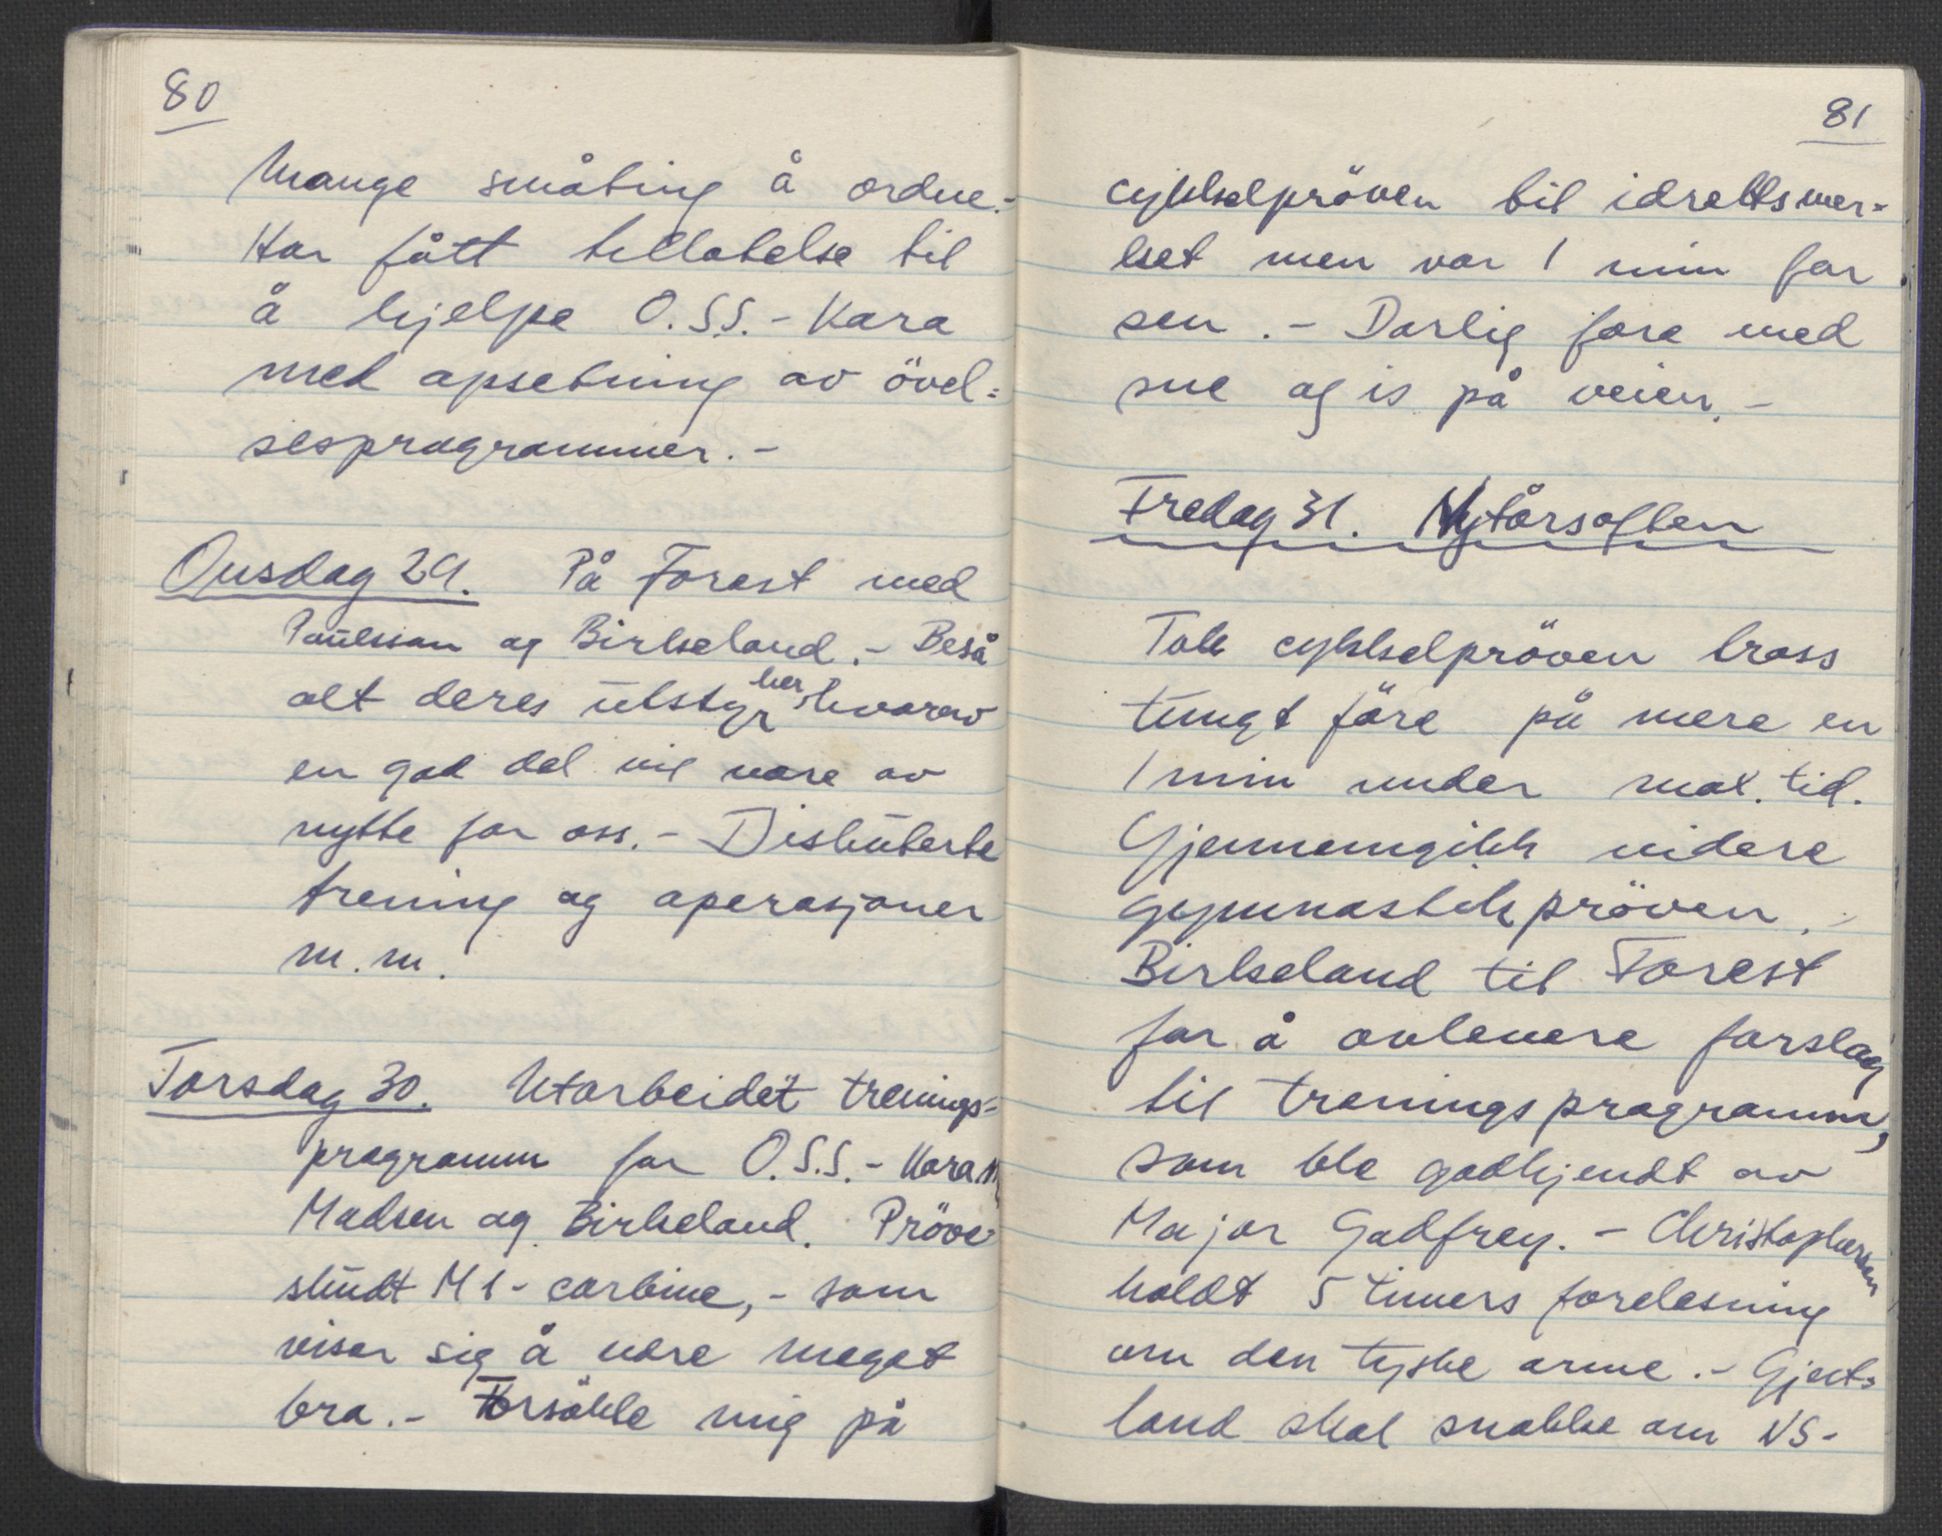 80
Mange småting å ordne.-
Har fått tillatelse til
å hjelpe O.S.S.-Kara
med opsetning av övel=
sesprogrammer.-
Onsdag 29. På Forest med
Paulsson og Birkeland.- Beså
alt deres utstyr her hvorav
en god del vil være av
nytte for oss.- Diskuterte
trening og operasjoner
m.m.
Torsdag 30. Utarbeidet trenings-
programm for O.S.S.-Kara m/
Madsen og Birkeland. Pröve-
skudt M1-carbine,- som
viser sig å være meget
bra.- Forsökte mig på
81
cykkelpröven til idrettsmer=
ket men var 1 min for
sen.- Dårlig före med
sne og is på veien.-
Fredag 31. Nytårsaften
Tok cykkelpröven tross
tungt före på mere en
1 min under max. tid.
Gjennemgikk videre
gymnastikkpröven.-
Birkeland til Forest
for å avlevere forslag
til treningsprogramm,
som ble godkjendt av
Major Godfrey.- Christophersen
holdt 5 timers forelesning
om den tyske arme.- Gjest=
land skal snakke om NS-